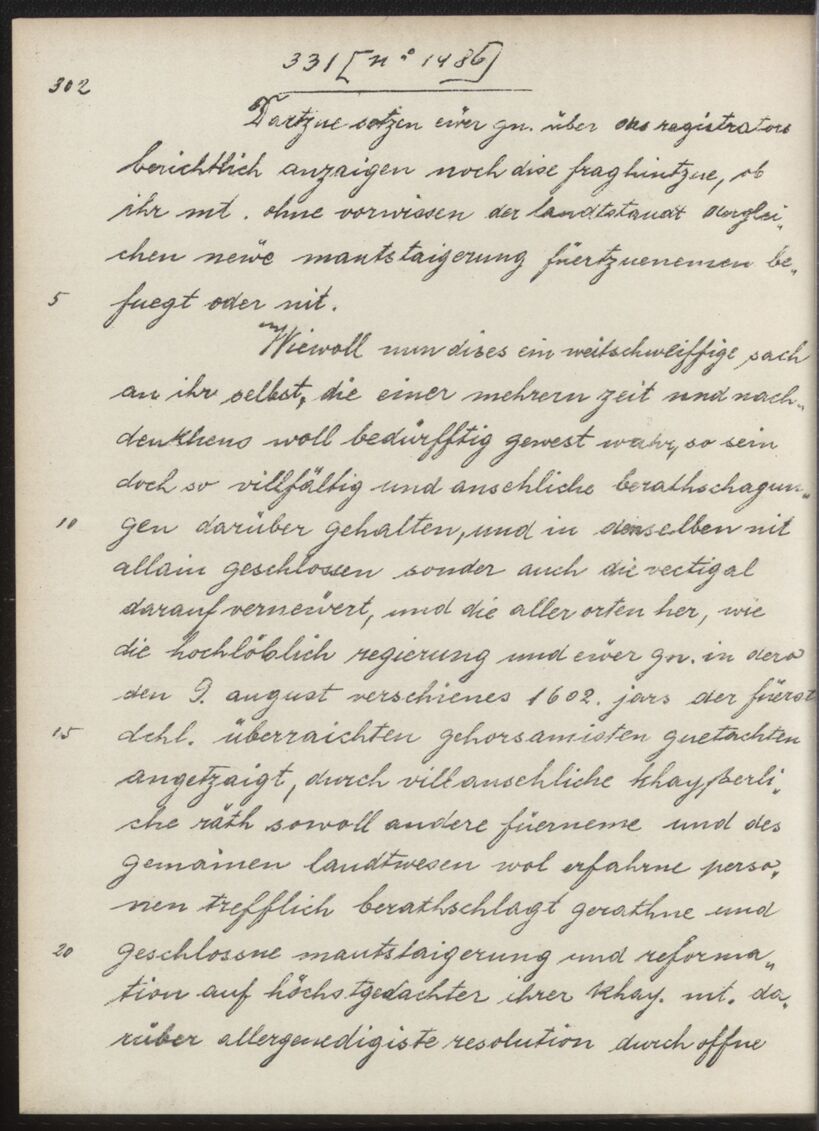 331 [nº 1486]
302
Dartzue setzen ewer gn. über des registrators
berichtlich anzaigen noch dise frag hintzue, ob
ihr mt. ohne vorwissen der landtstandt derglei„
chen newe mautstaigerung füertzuenemen be„
5 fuegt oder nit.
Wiewoll nun dises ein weitschweiffige sach
an ihr selbst, die einer mehrern zeit und nach„
denkhens woll bedürfftig gewest wahr, so sein
doch so villfältig und ansehliche berathschagun„
10 gen darüber gehalten, und in denselben nit
allain geschlossen sonder auch die vectigal
darauf vernewert, und die aller orten her, wie
die hochlöblich regierung und ewer gn. in dero
den 9. august verschienes 1602. jars der fuerst
15 dchl. überraichten gehorsamisten guetachten
angetzaigt, durch vill ansehliche khayserli„
che räth sowoll andere füerneme und des
gemainen landtwesen wol erfahrne perso„
nen trefflich berathschlagt gerathne und
20 geschlossne mautstaigerung und reforma„
tion auf höchstgedachter ihrer khay. mt. da„
rüber allergenedigiste resolution durch offne